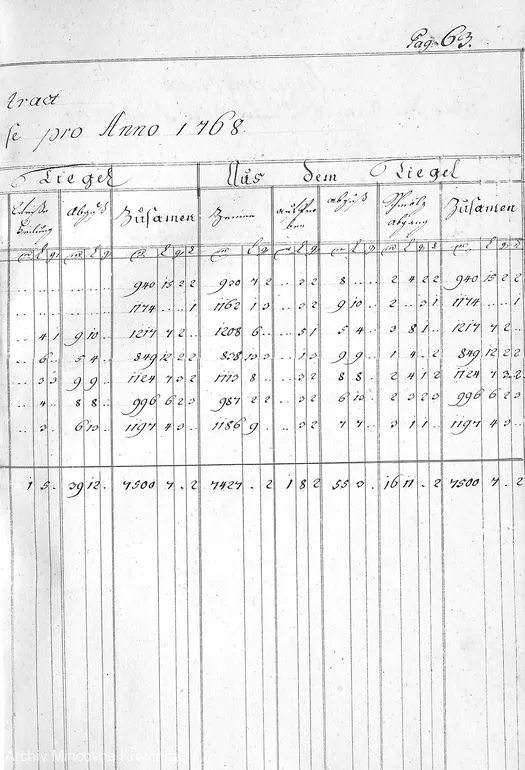 Pag. 63.
tract
se pro Anno 1768.
Tiegel Aus dem Tiegel
Abguß Zusamen abguß Schmölz abgang Zusamen
940 15 2 2 930 7 2 .. 3 2 8 .. 2 4 2 2 940 15 2 2
1174 .. 1 1162 1 3 .. 3 2 9 10 . 2 .. 3 1 1174 .. 1
4 1 9 10 . 1217 7 2 . 1208 6 .. .. 5 1 5 4 . 3 8 1 . 1217 7 2 .
6 . 5 4 . 849 12 2 2 838 13 3 .. 1 3 9 9 . 1 4 . 2 849 12 2 2
3 3 9 9 . 1124 7 3 2 1113 8 .. .. 3 2 8 8 . 2 4 1 2 1124 7 3 2
4 . 8 8 . 996 6 2 3 987 2 2 .. 3 2 6 10 . 2 3 2 3 996 6 2 3
3 . 6 10 . 1197 4 3 . 1186 9 .. .. 3 2 7 7 . 3 1 1 . 1197 4 3 .
1 5 . 39 12 . 7500 7 . 2 7427 . 2 1 8 2 55 3 . 16 11 . 2 7500 7 . 2
Archív Mincovne Kremnica